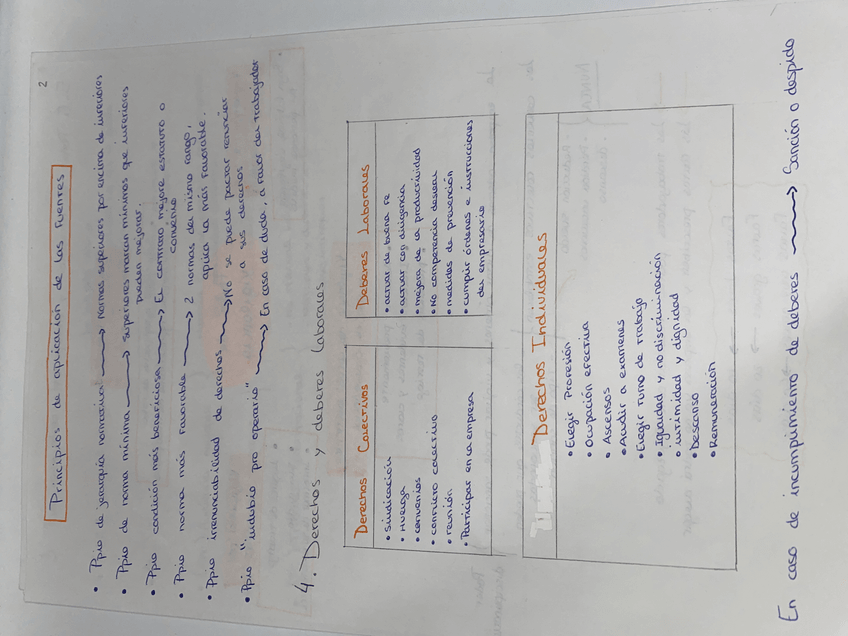 2
Principios de aplicación de las Fuentes
• Ppio de jerarquía normativa → Normas superiores por encima de inferiores
• Ppio de norma mínima → Superiores marcan mínimos que inferiores
pueden mejorar.
• Ppio condición más beneficiosa → El contrato mejore estatuto o
convenio
• Ppio norma más Favorable → 2 normas del mismo rango,
aplica la más Favorable.
• Ppio irrenunciabilidad de derechos → No se puede pactar renunciar
a sus derechos
• Ppio "indubio pro operario" → En caso de duda, a favor del trabajador
4. Derechos y deberes laborales
Derechos Colectivos
• sindicación
• Huelga
• convenios
• conflicto colectivo
• reunión
• Participar en la empresa
Deberes Laborales
• actuar de buena Fe
• actuar con diligencia
• mejora de la productividad
• No competencia desleal
• medidas de prevención
• cumplir órdenes e instrucciones
del empresario
Derechos Individuales
• Elegir Profesión
• Ocupación efectiva
• Ascensos
• Acudir a examenes
• Elegir turno de trabajo
• Igualdad y no discriminación
• intimidad y dignidad
• Descanso
• Remuneración
En caso de incumplimiento de deberes → Sanción o despido